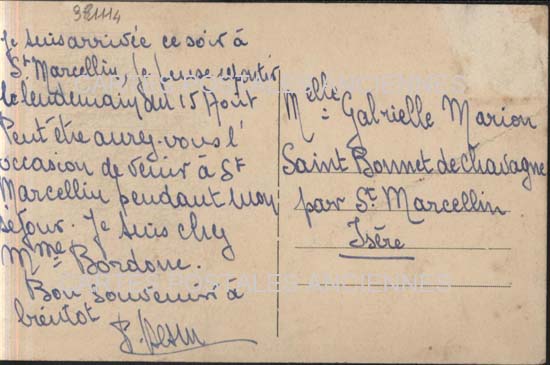 Je suis arrivée ce soir à
St Marcellin, je pense repartir
le lendemain du 15 Août
Peut être aurez-vous l'
occasion de venir à St
Marcellin pendant mon
séjour. Je suis chez
Mme Bordone.
Bon souvenir à
bientot
Melle Gabrielle Marion
Saint Bonnet de Chavagne
par St Marcellin
Isère
CARTES POSTALES ANCIENNES
CARTES POSTALES ANCIENNES